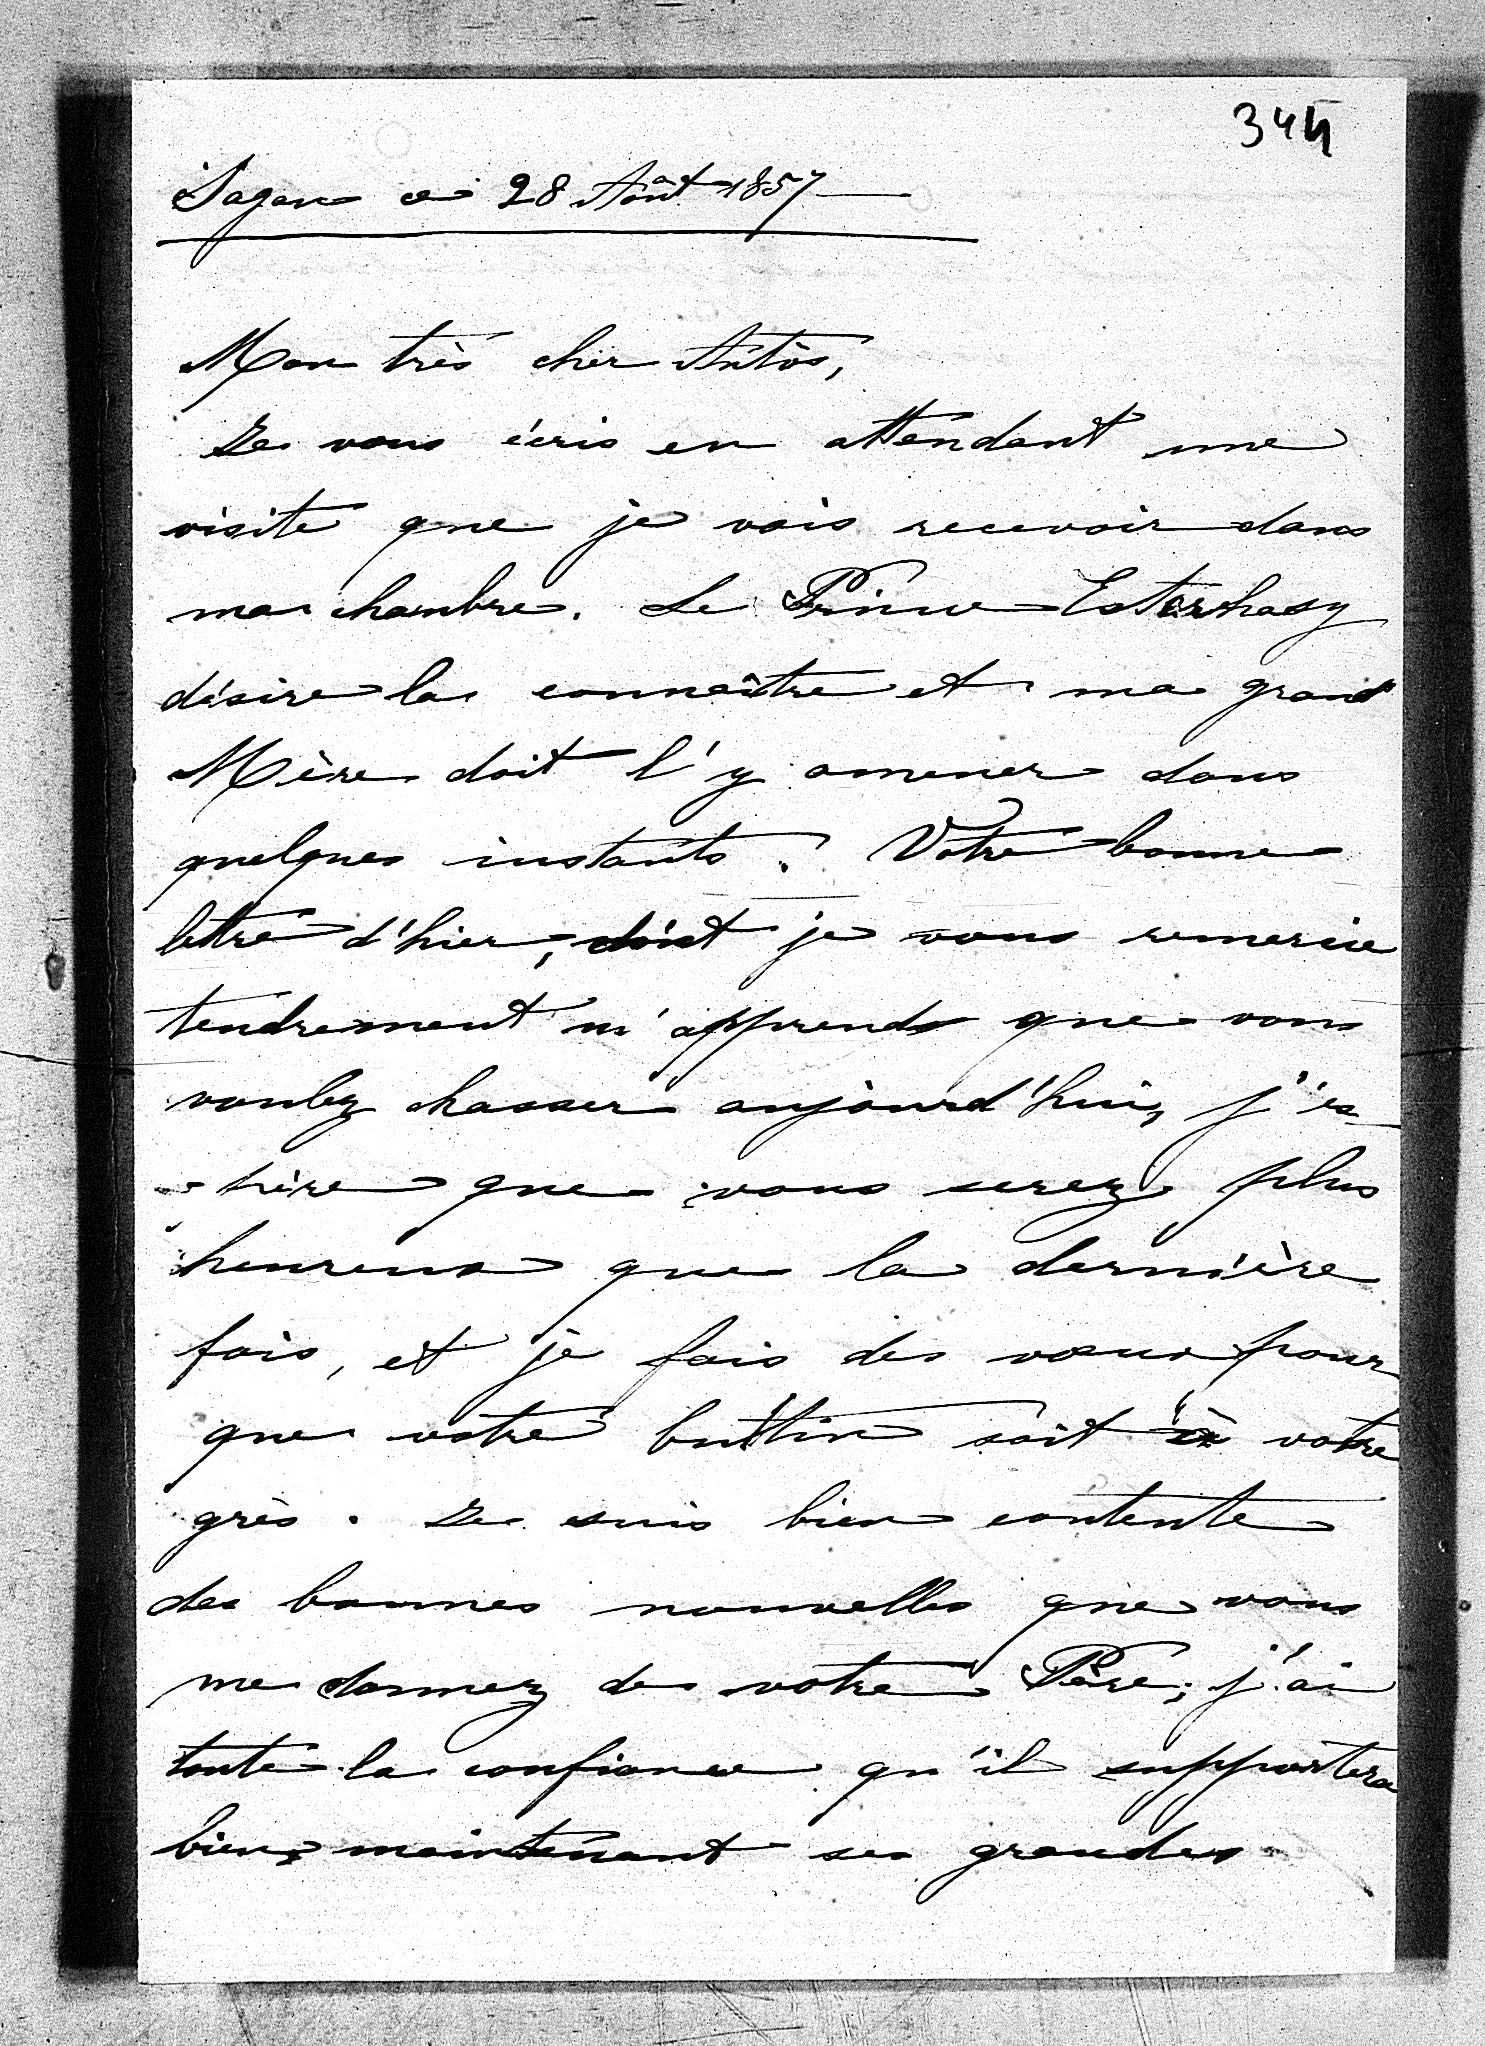 344
Sagan ce 28 Août 1857
Mon très cher Antôs,
Je vous écris en attendant une
visite que je vais recevoir dans
ma chambre. Le Prince Esterhasy
désire la connaître et ma grand
Mère doit l'y amener dans
quelques instants. Votre bonne
lettre d'hier, dont je vous remercie
tendrement m'apprend que vous
voulez chasser aujourd'hui, j'es-
-père que vous serez plus
heureux que la dernière
fois, et je fais des vœux pour
que votre buttin soit à votre
grès. Je suis bien contente
des bonnes nouvelles que vous
me donnez de votre Père; j'ai
toute la confiance qu'il supportera
bien maintenant ses grandes